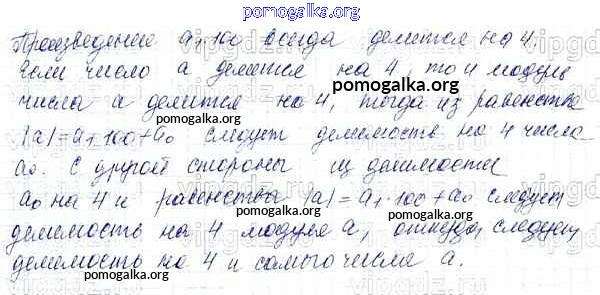 pomogalka.org
Произведение a₁·100 всегда делится на 4,
если число a делится на 4, то и модуль
pomogalka.org
числа a делится на 4, тогда из равенства
|a|=a₁·100+a₀ следует делимость на 4 числа
pomogalka.org
a₀. С другой стороны из делимости
a₀ на 4 и равенства |a|=a₁·100+a₀ следует
pomogalka.org
делимость на 4 модуля a, откуда следует
делимость на 4 и самого числа a.
pomogalka.org